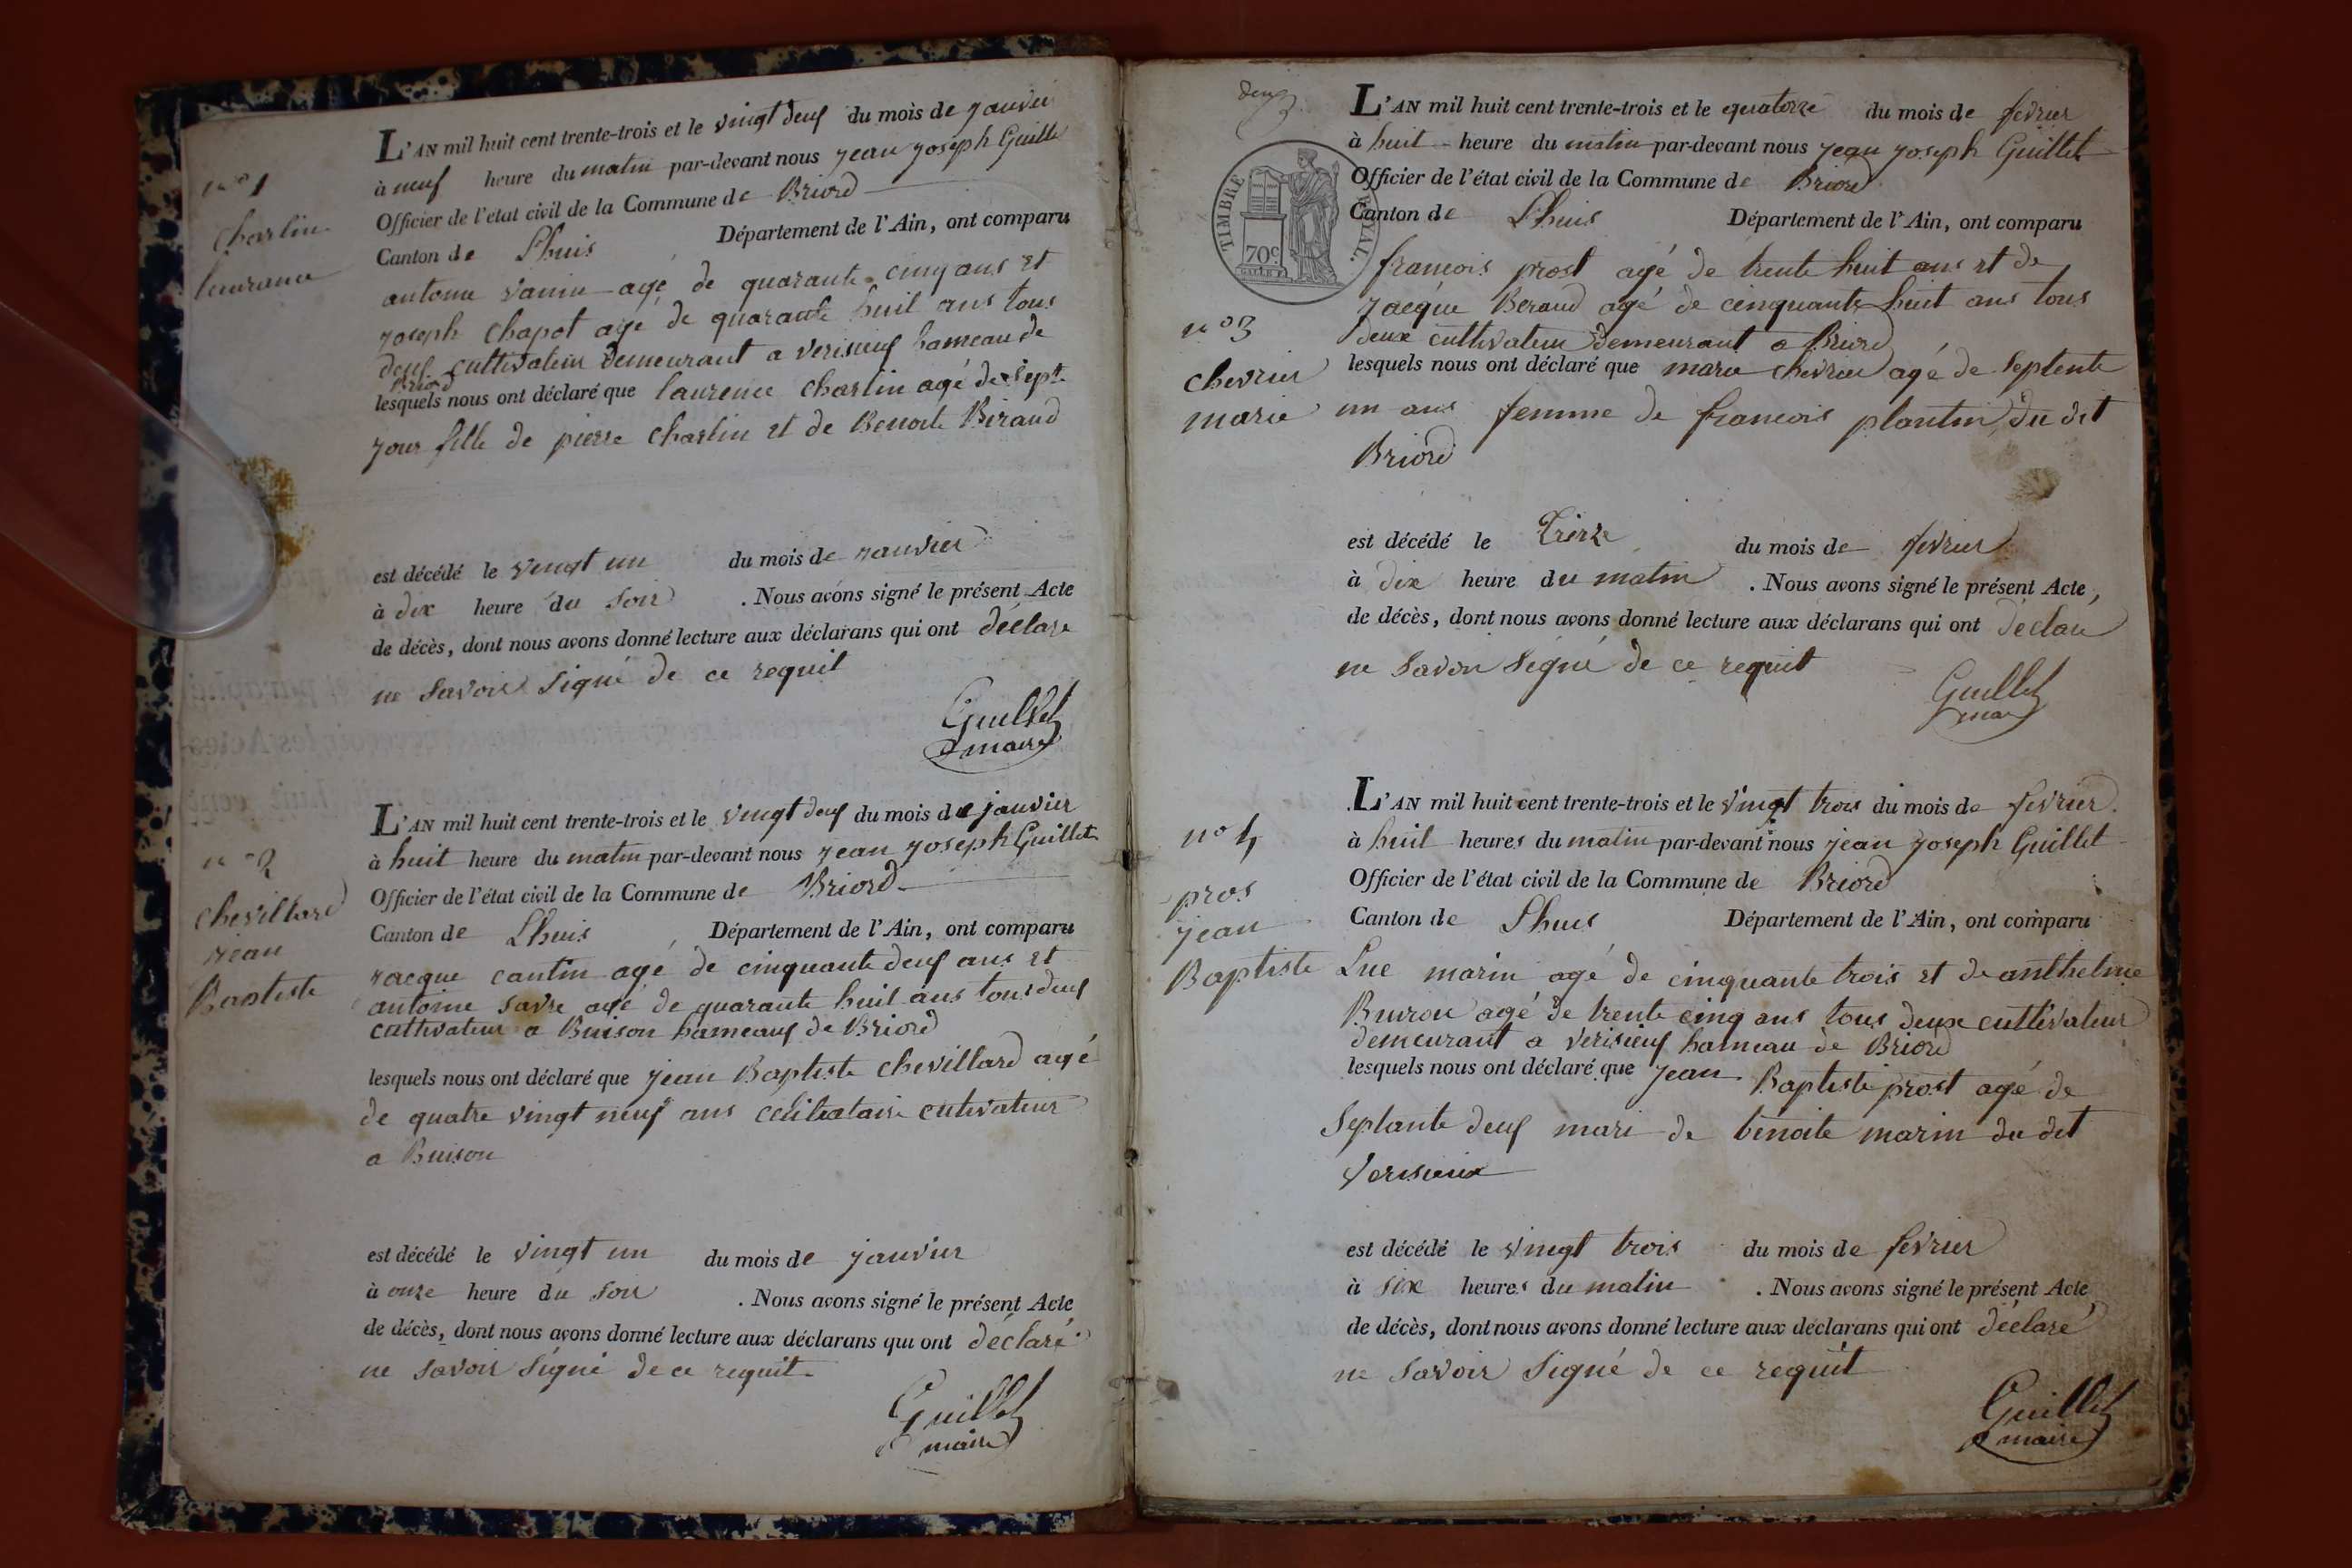 n° 1
Charlin
laurance
L'AN mil huit cent trente-trois et le vingt deuf du mois de janvier
à neuf heure du matin par-devant nous jean joseph Guillet
Officier de l'état civil de la Commune de Briord
Canton de Lhuis Département de l'Ain, ont comparu
antoine agé de quarante cinq ans et
joseph Chapot agé de quarante huit ans tous
deuf cultivateur demeurant a verisieuf hameau de
Briord
lesquels nous ont déclaré que laurence Charlin agé de sept
jour fille de pierre Charlin et de Benoite Beraud
est décédé le vingt un du mois de janvier
à dix heure du soir . Nous avons signé le présent Acte
de décès, dont nous avons donné lecture aux déclarans qui ont déclare
ne Savoir Signé de ce requit
Guillet
maire
n° 2
chevillard
jean
Baptiste
L'AN mil huit cent trente-trois et le vingt deuf du mois de janvier
à huit heure du matin par-devant nous jean joseph Guillet
Officier de l'état civil de la Commune de Briord
Canton de Lhuis Département de l'Ain, ont comparu
jacque cantin agé de cinquante deuf ans et
antoine savre agé de quarante huit ans tous deuf
cultivateur a Buison hameauf de Briord
lesquels nous ont déclaré que jean Baptiste chevillard agé
de quatre vingt neuf ans célibataire cutivateur
a Buison
est décédé le vingt un du mois de janvier
à onze heure du soir . Nous avons signé le présent Acte
de décès, dont nous avons donné lecture aux déclarans qui ont déclaré
ne savoir Signé de ce requit
Guillet
maire
deux
TIMBRE ROYAL.
70c.
n° 3
chevrier
marie
L'AN mil huit cent trente-trois et le quatorze du mois de fevrier
à huit heure du matin par-devant nous jean joseph Guillet
Officier de l'état civil de la Commune de Briord
Canton de Lhuis Département de l'Ain, ont comparu
francois prost agé de trente huit ans et de
jacque Beraud agé de cinquante huit ans tous
deux cultivateur demeurant a Briord
lesquels nous ont déclaré que marie chevrier agé de septente
un ans femme de francois plantin du dit
Briord
est décédé le treize du mois de fevrier
à dix heure du matin . Nous avons signé le présent Acte,
de décès, dont nous avons donné lecture aux déclarans qui ont déclaré
ne savoir Signé de ce requit
Guillet
maire
n° 4
pros
jean
Baptiste
L'AN mil huit cent trente-trois et le vingt trois du mois de fevrier
à huit heures du matin par-devant nous jean joseph Guillet
Officier de l'état civil de la Commune de Briord
Canton de Lhuis Département de l'Ain, ont comparu
Luc marin agé de cinquante trois et de anthelme
Buvron agé de trente cinq ans tous deux cultivateur
demeurant a verisieuf hameau de Briord
lesquels nous ont déclaré que jean Baptiste prost agé de
Septante deuf mari de benoite marin du dit
Verisieux
est décédé le vingt trois du mois de fevrier
à six heures du matin . Nous avons signé le présent Acte
de décès, dont nous avons donné lecture aux déclarans qui ont déclaré
ne Savoir Signé de ce requit
Guillet
maire